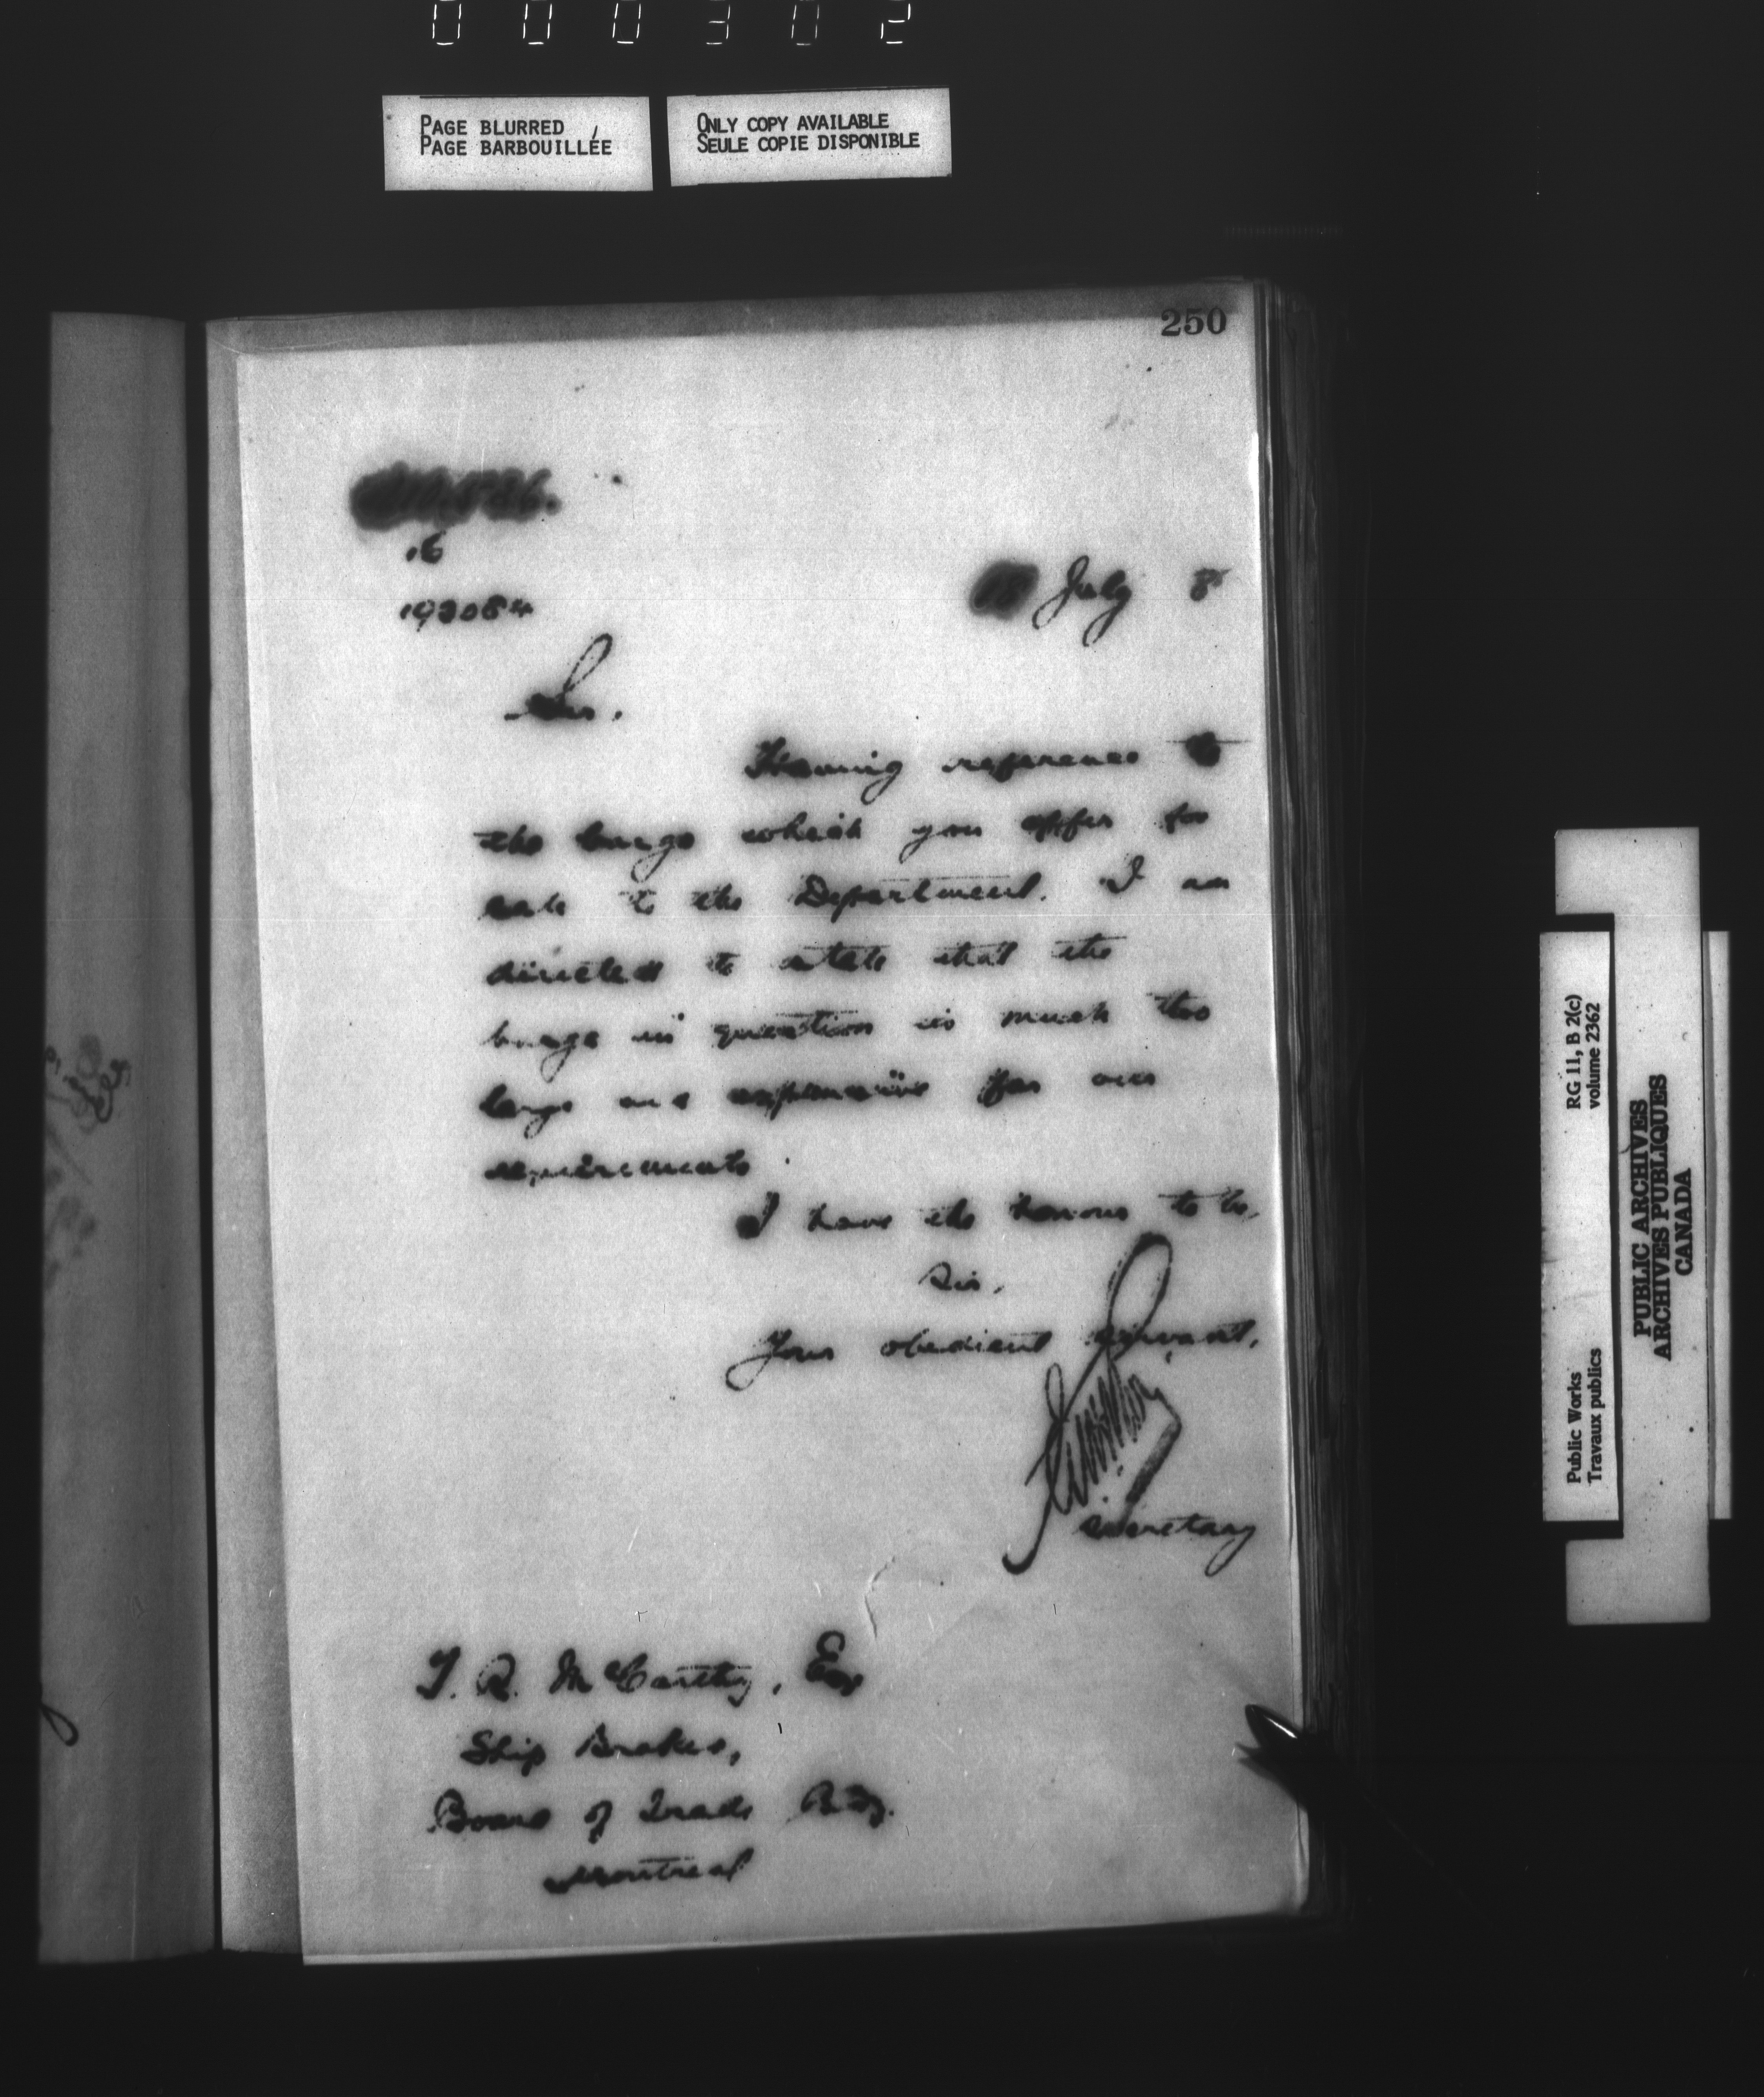 000302
PAGE BLURRED
PAGE BARBOUILLÉE
ONLY COPY AVAILABLE
SEULE COPIE DISPONIBLE
250
16
193084
July 8
Sir,
Having reference to
the barge which you offer for
sale to the Department. I am
directed to state that the
barge in question is much too
large and expensive for our
requirements.
I have the honour to be,
Sir,
Your obedient servant,
Secretary
T. R. McCarthy, Esq
Ship Broker,
Board of Trade Bldg.
Montreal
RG 11, B 2(c)
volume 2362
Public Works
Travaux publics
PUBLIC ARCHIVES
ARCHIVES PUBLIQUES
CANADA